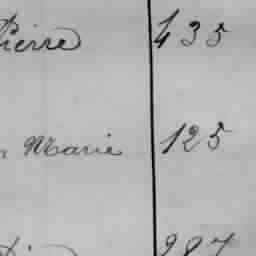 Pierre 435
Marie 125
287